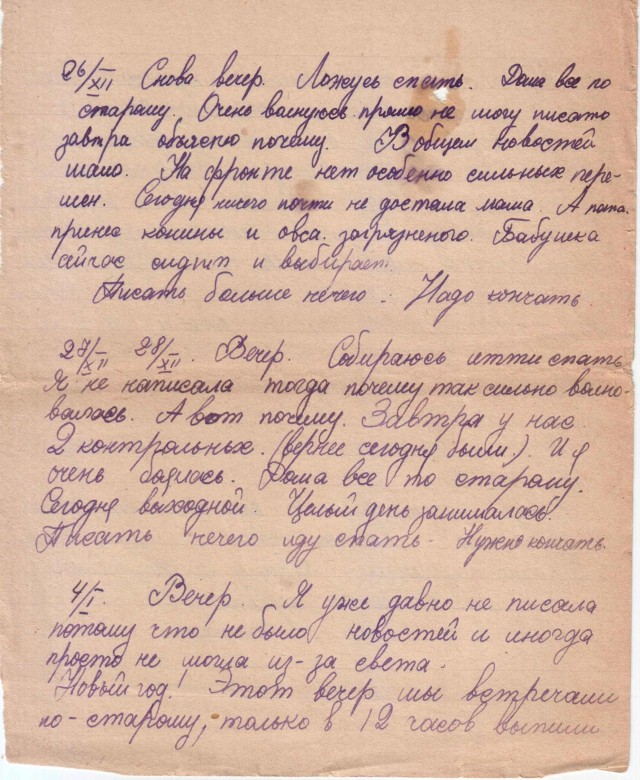 26/XII Снова вечер. Ложусь спать. Дома все по
старому. Очень волнуюсь прямо не могу писать
завтра объясню почему. В общем новостей
мало. На фронте нет особенно сильных пере-
мен. Сегодня ничего почти не достала мама. А папа
принес конины и овса. загрязненого. Бабушка
сейчас сидит и выбирает.
Писать больше нечего. Надо кончать.
27/XII 28/XII. Вечер. Собираюсь итти спать
Я не написала тогда почему так сильно волно-
валась. А вот почему. Завтра у нас
2 контрольных. (вернее сегодня были.). И я
очень боялась. Дома все по старому.
Сегодня выходной. Целый день занималась.
Писать нечего иду спать. Нужно кончать.
4/I. Вечер. Я уже давно не писала
потому что не было новостей и иногда
просто не могла из-за света.
Новый год! Этот вечер мы встречали
по-старому, только в 12 часов выпили